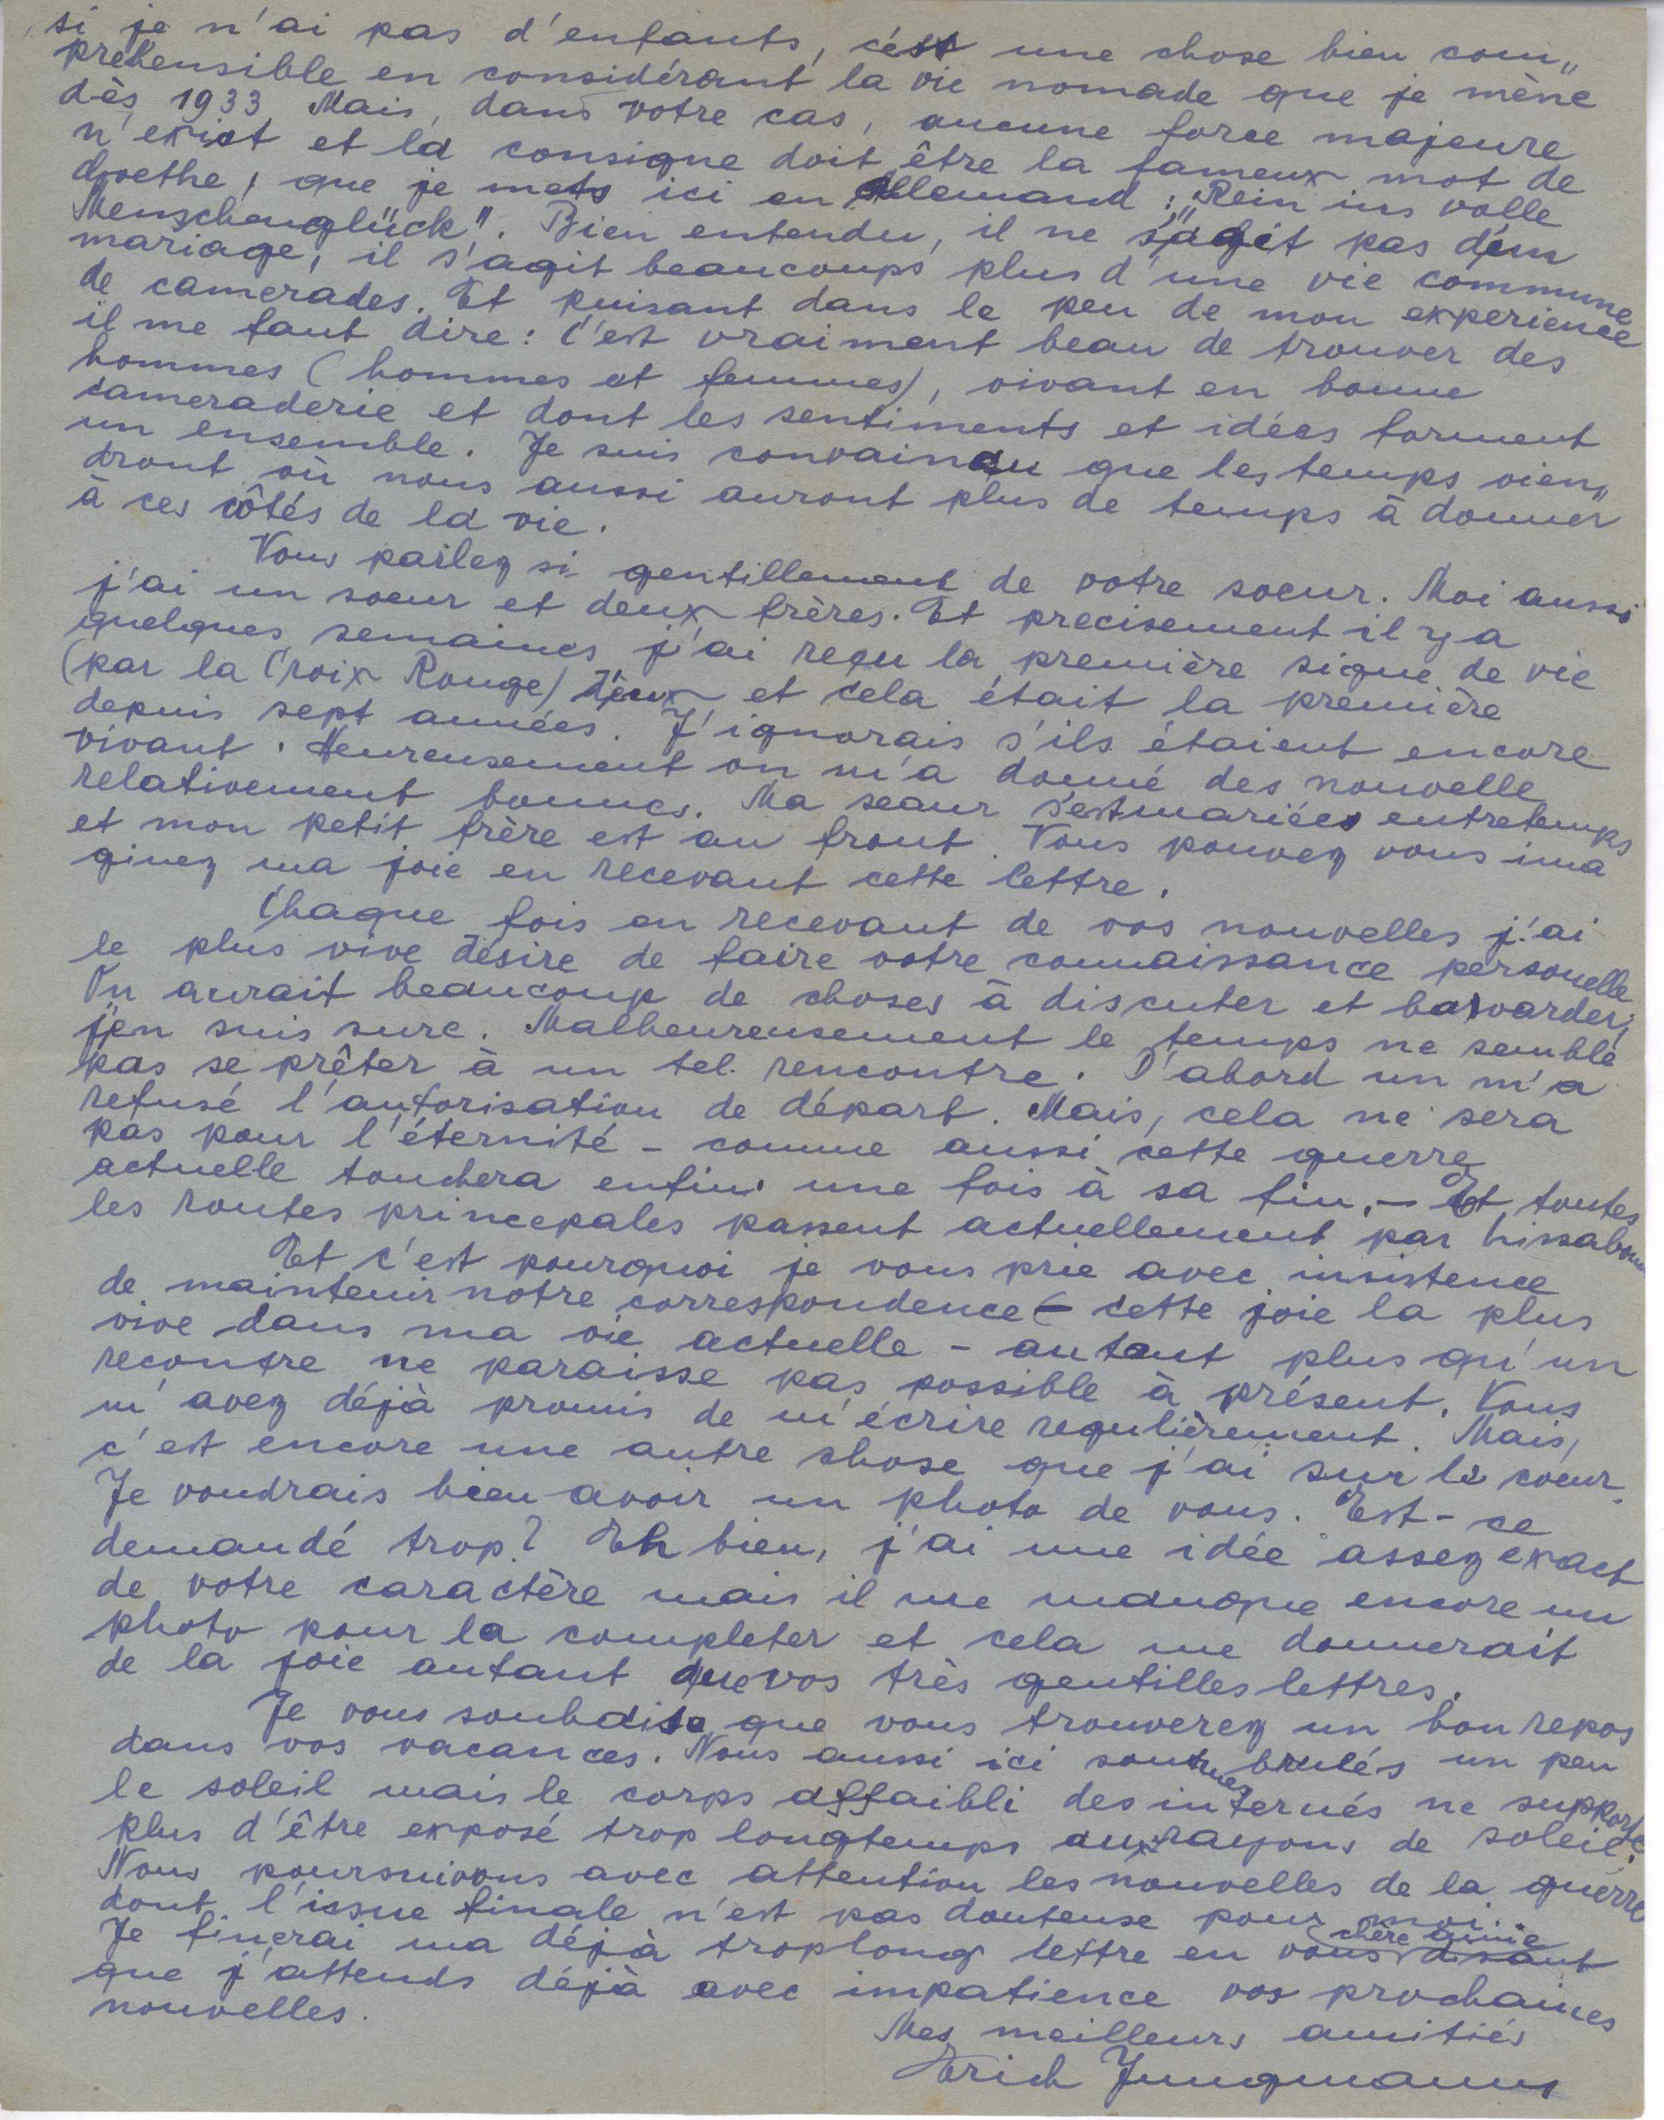 si je n'ai pas d'enfants, c'est une chose bien com„
prehensible en considérant la vie nomade que je mène
dès 1933 Mais, dans votre cas, aucune force majeure
n'exist et la consigne doit être la fameux mot de
Goethe, que je mets ici en Allemand: „Rein ins volle
Menschenglück". Bien entendu, il ne s'agit pas d'un
mariage, il s'agit beaucoups plus d'une vie commune
de camerades. Et puisant dans le peu de mon experience
il me faut dire: C'est vraiment beau de trouver des
hommes (hommes et femmes), vivant en bonne
cameraderie et dont les sentiments et idées forment
un ensemble. Je suis convaincu que les temps vien„
dront où nous aussi auront plus de temps à donner
à ces côtés de la vie.
Vous parlez si gentillement de votre soeur. Moi aussi
j'ai un soeur et deux frères. Et precisement il y a
quelques semaines j'ai reçu la première signe de vie
(par la Croix Rouge) d'eux et cela était la première
depuis sept années. J'ignorais s'ils étaient encore
vivant. Heureusement on m'a donné des nouvelle
relativement bonnes. Ma seaur s'est mariées entretemps
et mon petit frère est au front. Vous pouvez vous ima
ginez ma joie en recevant cette lettre.
Chaque fois en recevant de vos nouvelles j'ai
le plus vive desire de faire votre connaissance personelle
On aurait beaucoup de choses à discuter et bavarder,
j'en suis sure. Malheureusement le temps ne semble
pas se prêter à un tel. rencontre. D'abord un m'a
refusé l'autorisation de départ. Mais, cela ne sera
pas pour l'éternité - comme aussi cette guerre
actuelle touchera enfin une fois à sa fin. - Et toutes
les routes princepales passent actuellement par Lissabonn
Et c'est pourquoi je vous prie avec insistence
de maintenir notre correspondence - cette joie la plus
vive dans ma vie actuelle - autant plus qu'un
recontre ne paraisse pas possible à présent. Vous
m'avez déjà promis de m'écrire regulièrement. Mais,
c'est encore une autre shose que j'ai sur le coeur.
Je voudrais bien avoir un photo de vous. Est-ce
demandé trop? Eh bien, j'ai une idée assez exact
de votre caractère mais il me manque encore un
photo pour la completer et cela me donnerait
de la joie autant que vos très gentilles lettres.
Je vous souhaite que vous trouverez un bon repos
dans vos vacances. Nous aussi ici sommes brulés un peu
le soleil mais le corps affaibli des internés ne supporte
plus d'être exposé trop longtemps aux rayons de soleil.
Nous poursuivons avec attention les nouvelles de la guerre
dont l'issue finale n'est pas douteuse pour moi.
Je finerai ma déjà trop long lettre en vous chère amie disant
que j'attends déjà avec impatience vos prochaines
nouvelles.
Mes meilleurs amitiés
Erich Jungmann